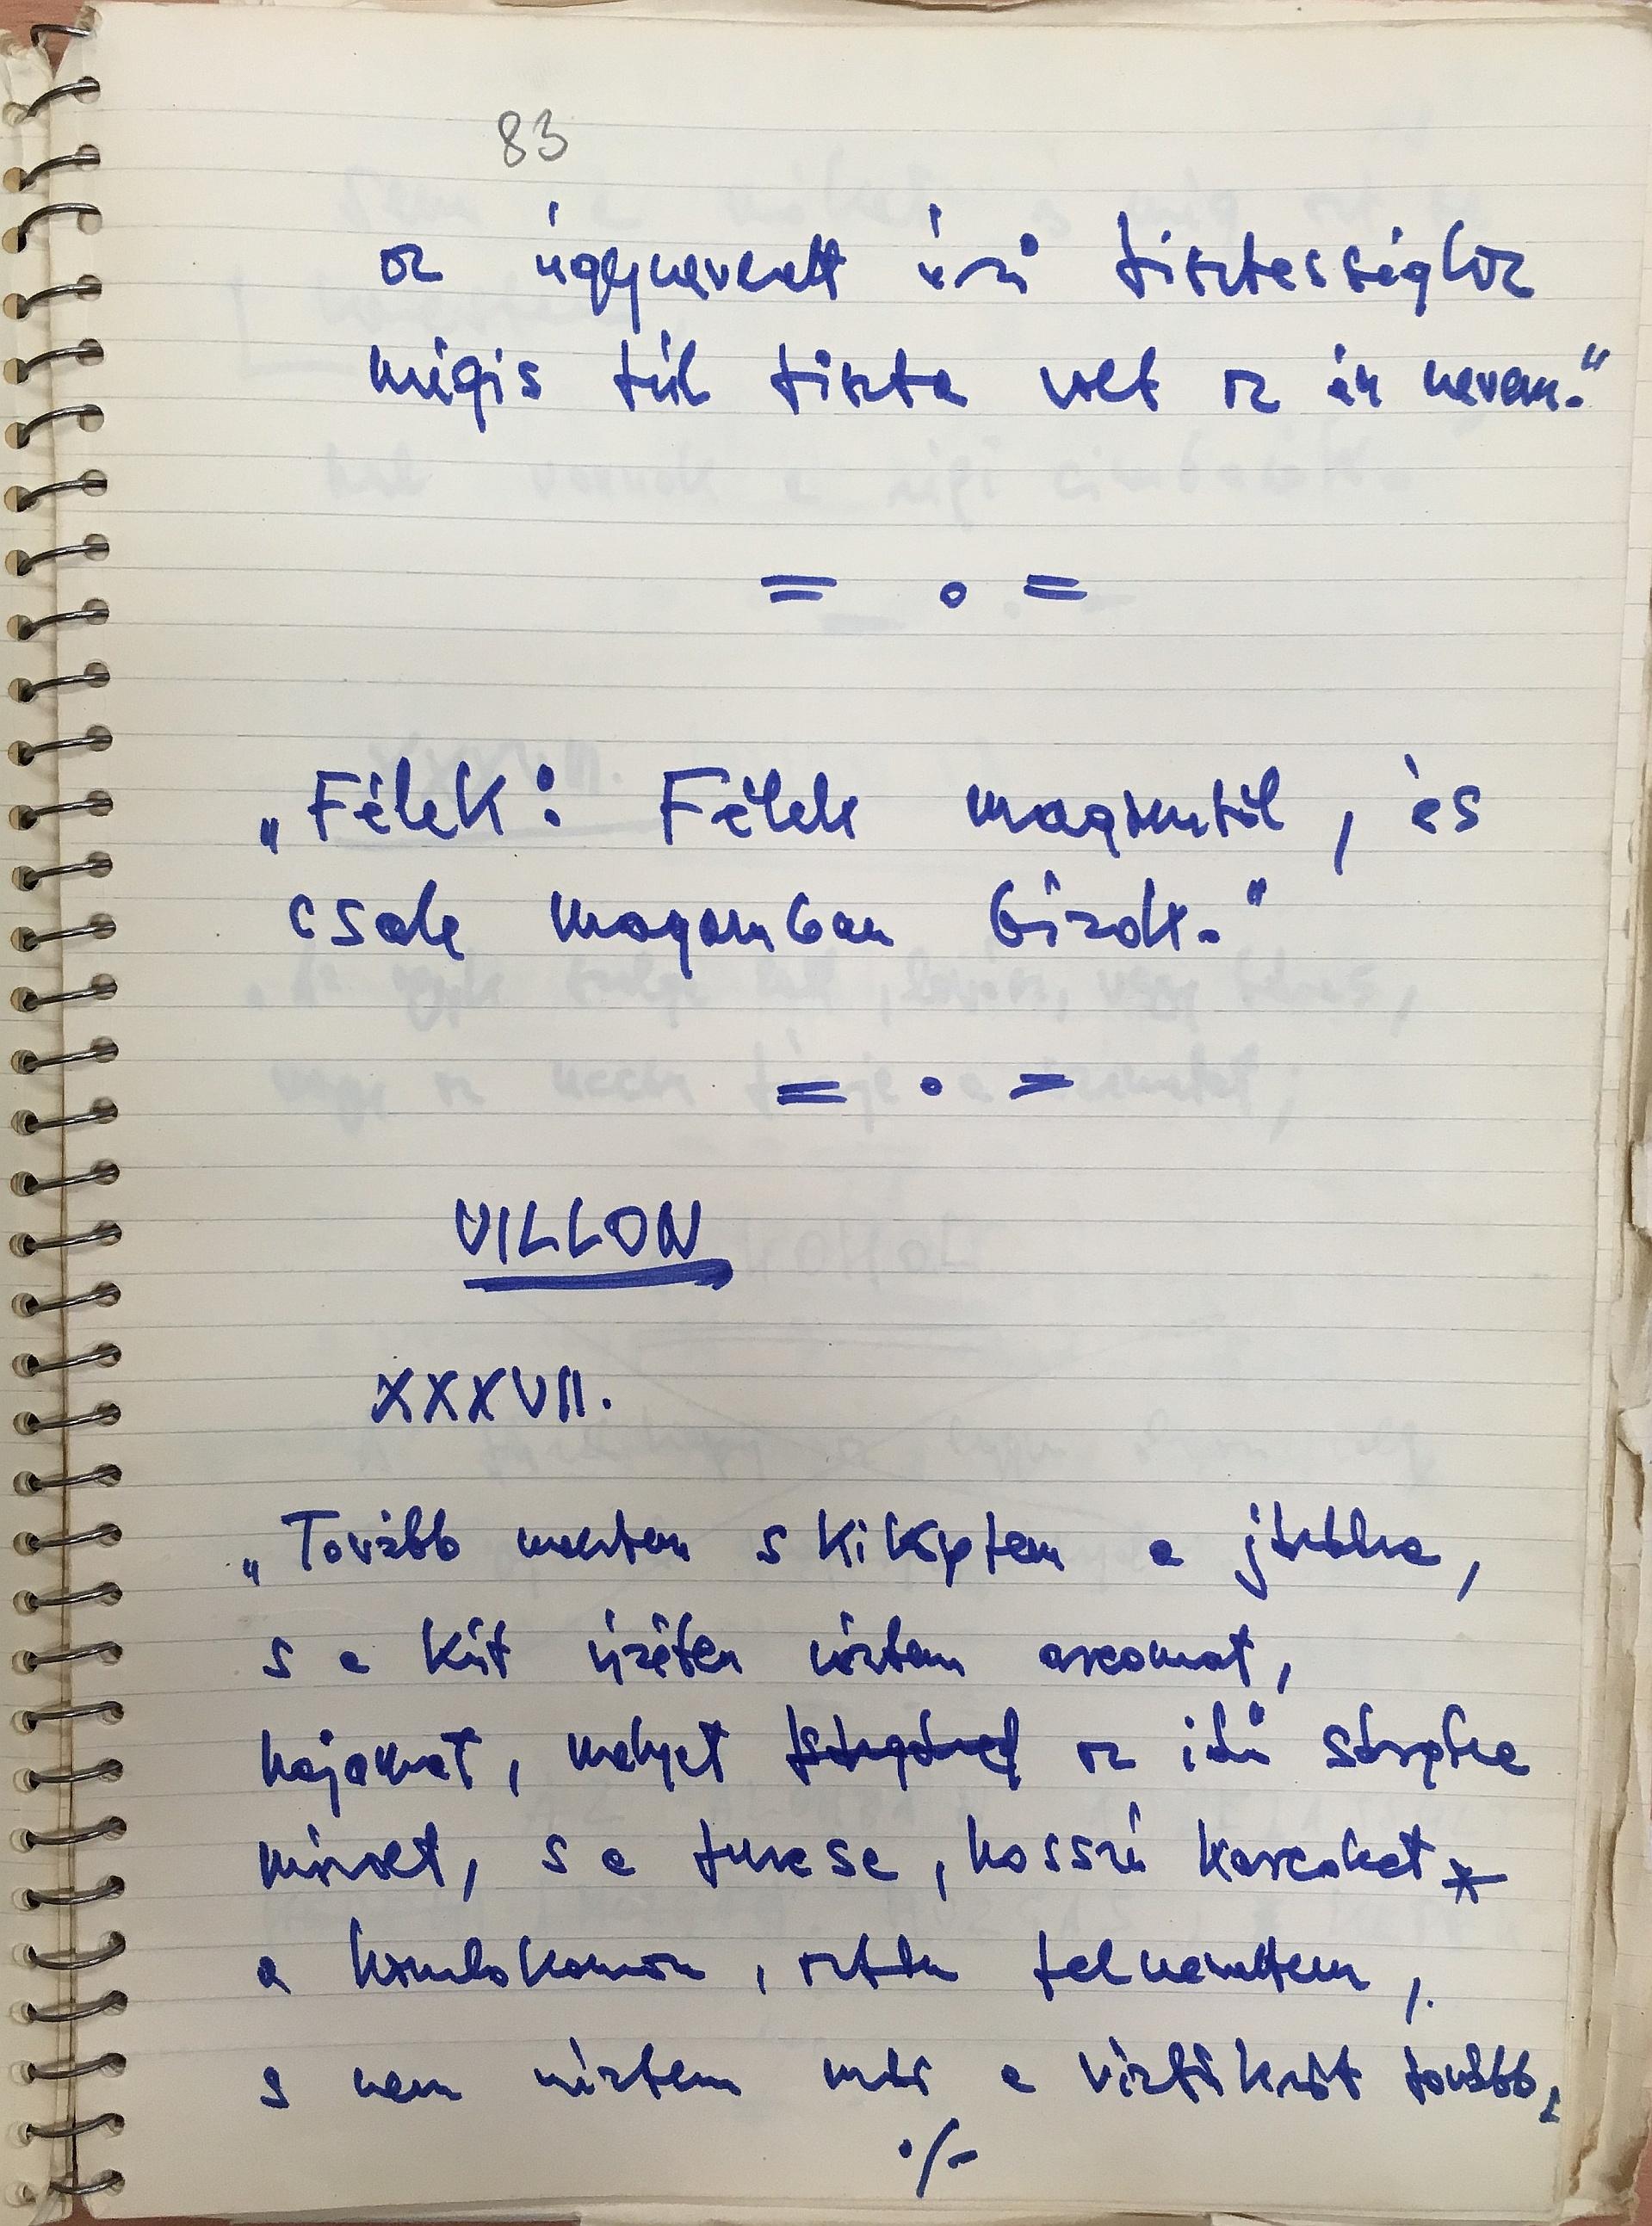 83
az úgynevezett írói tisztességhez
mégis túl tiszta volt az én nevem."
= o =
„Félek: Félek magamtól, és
csak magamban bízok."
= • =
VILLON
XXXVII.
„Tovább mentem s kiléptem a jékre,
s a kút vizében néztem arcomat,
hajamat, melyet az idő
mosott, s a furcsa, hosszú karcokat *
a homlokomon, aztán felnevettem,
s nem néztem már a víztükröt tovább,
·/-